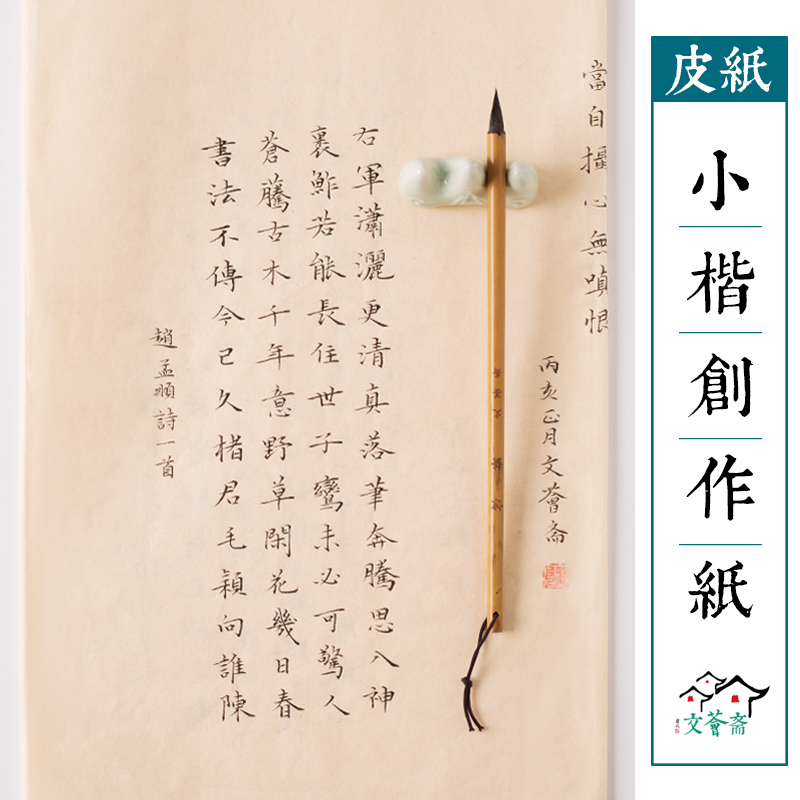 皮紙
小楷創作紙
文薈斋
當自攝心無嗔恨
丙亥正月文薈斋
右軍瀟灑更清真落筆奔騰思入神
裹鮓若能長住世子鸞未必可驚人
蒼騰古木千年意野草閑花幾日春
書法不傳今已久楮君毛穎向誰陳
趙孟頫詩一首